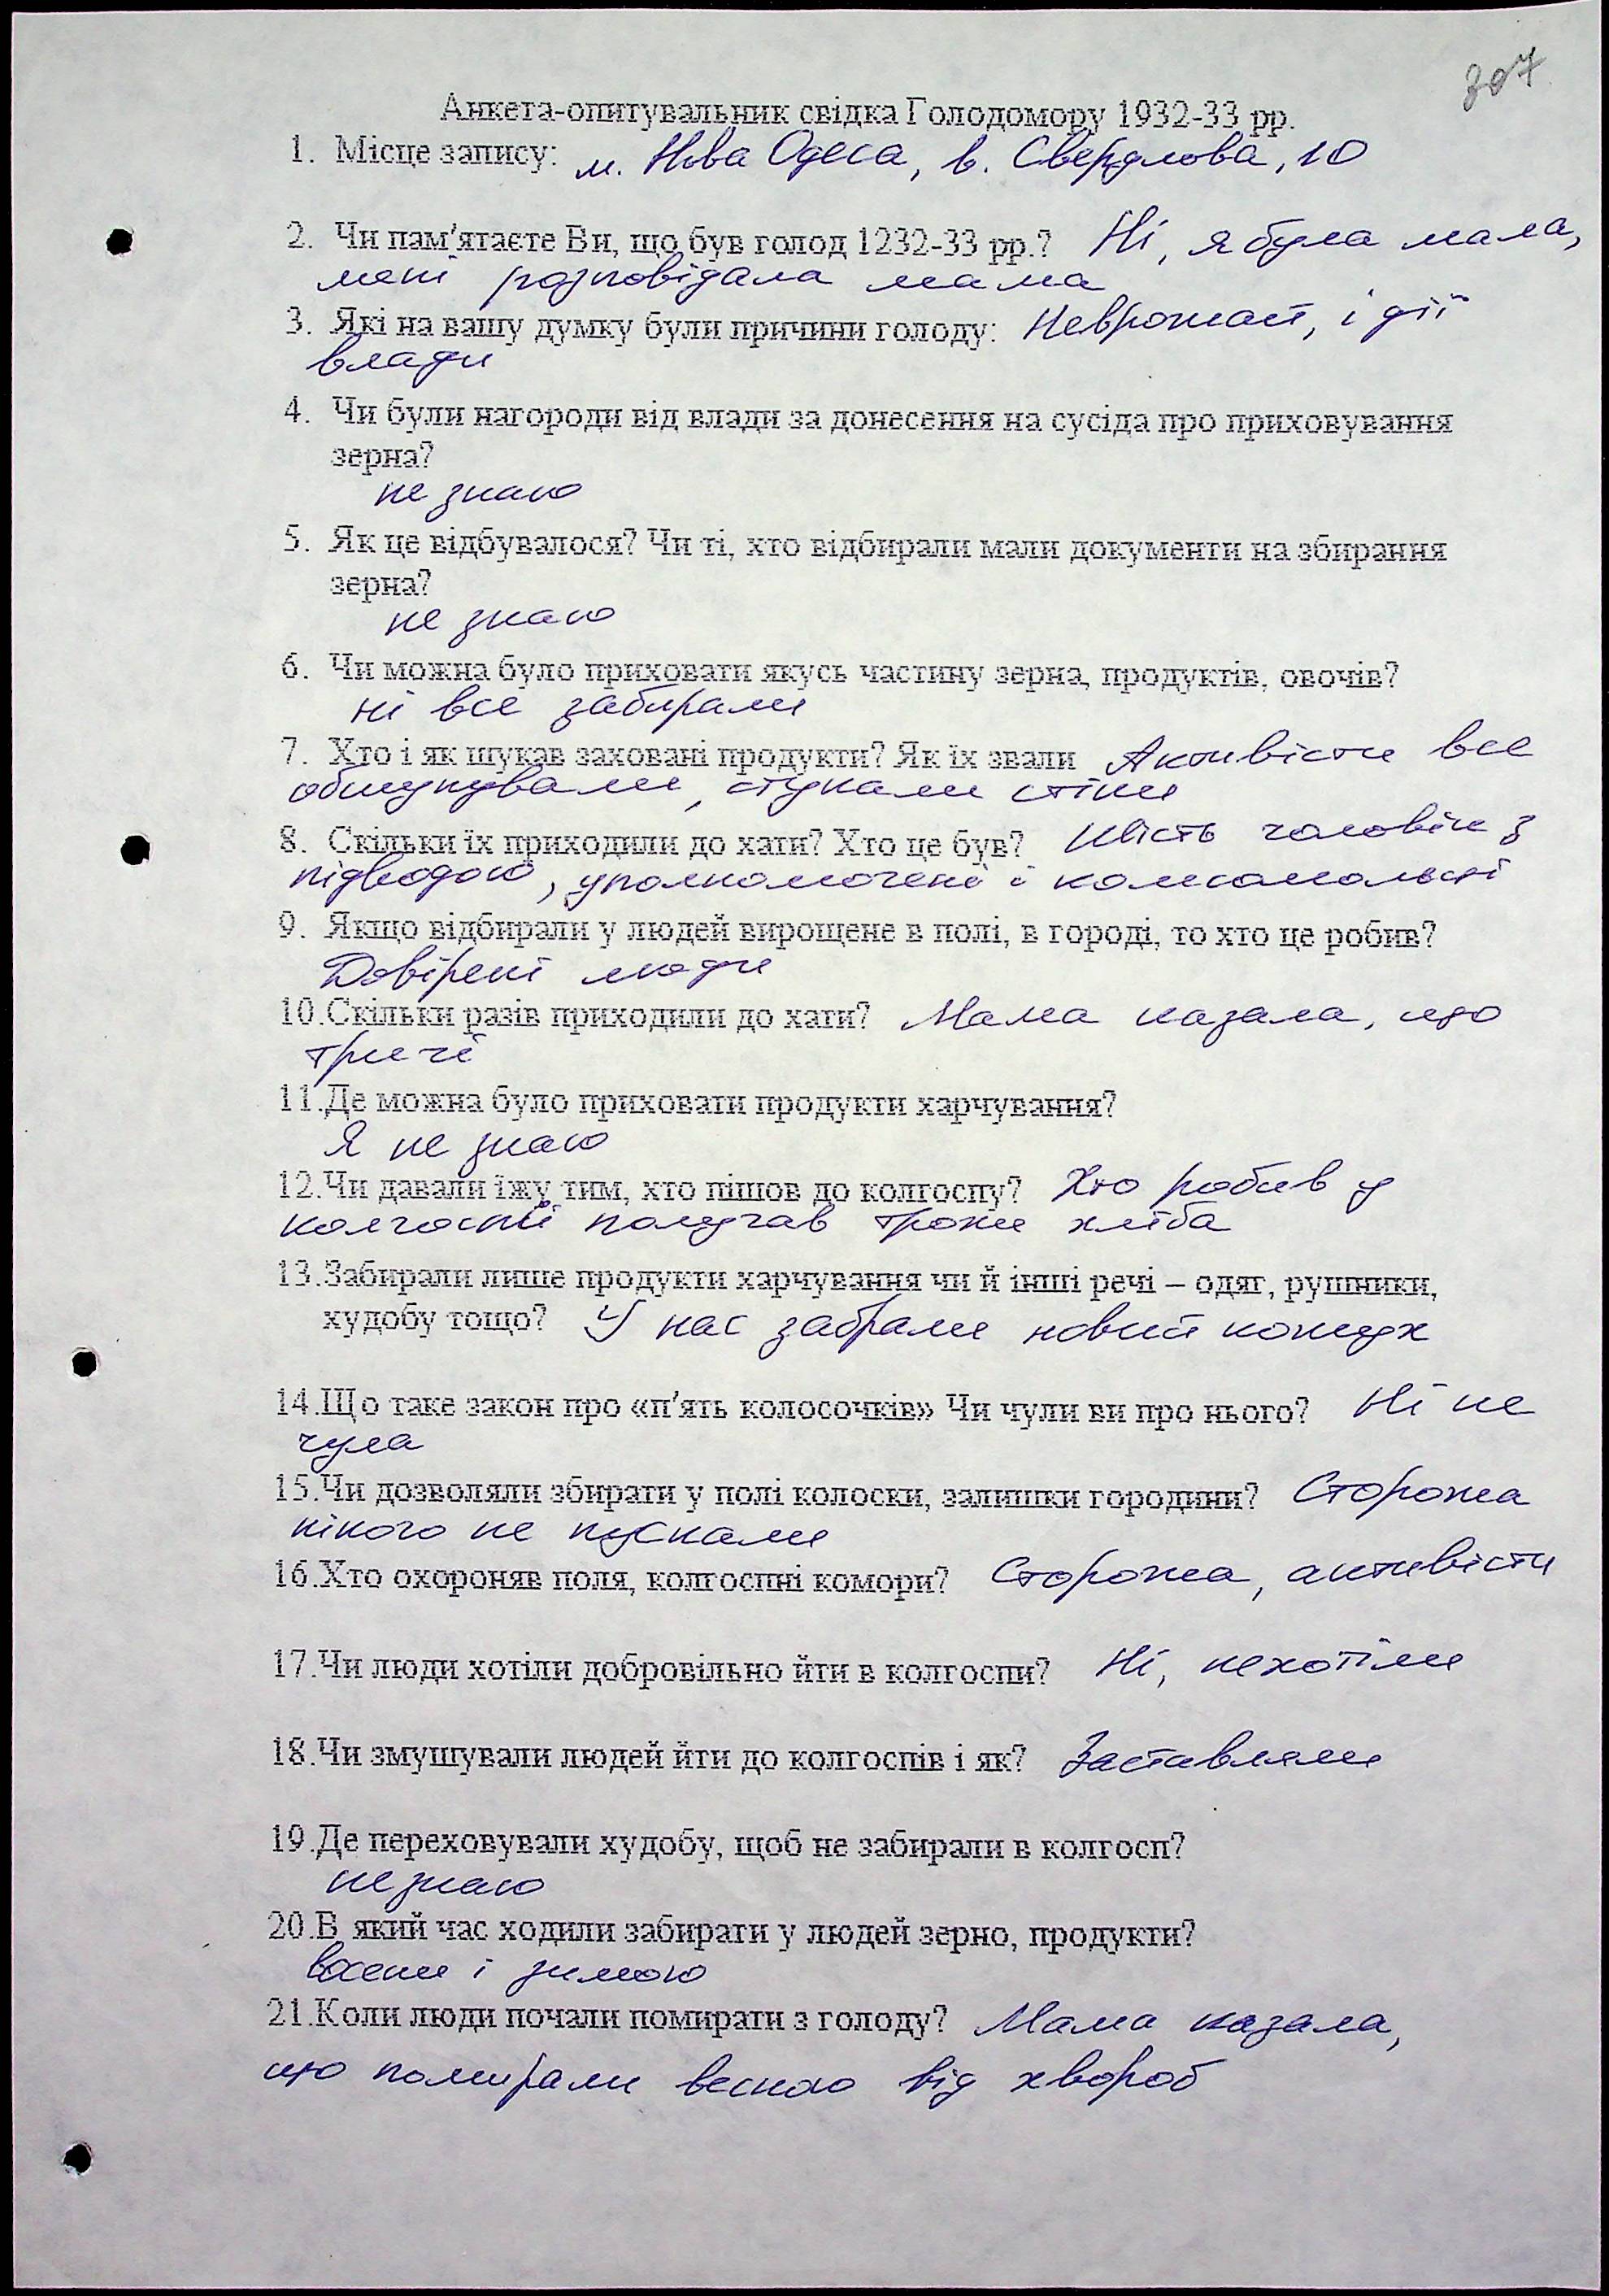 307
Анкета-опитувальник свідка Голодомору 1932-33 рр.
1. Місце запису: м. Нова Одеса, в. Свердлова, 10
2. Чи пам'ятаєте Ви, що був голод 1232-33 рр.? Ні, я була мала,
мені розповідала мама
3. Які на вашу думку були причини голоду: Неврожай, і дії
влади
4. Чи були нагороди від влади за донесення на сусіда про приховування
зерна?
не знаю
5. Як це відбувалося? Чи ті, хто відбирали мали документи на збирання
зерна?
не знаю
6. Чи можна було приховати якусь частину зерна, продуктів, овочів?
ні все забирали
7. Хто і як шукав заховані продукти? Як їх звали Активісти все
обшукували, стукали стіни
8. Скільки їх приходили до хати? Хто це був? Шість чоловік з
підводою, уполномочені і комсомольці
9. Якщо відбирали у людей вирощене в полі, в городі, то хто це робив?
Довірені люди
10.Скільки разів приходили до хати? Мама казала, що
тричі
11.Де можна було приховати продукти харчування?
Я не знаю
12.Чи давали їжу тим, хто пішов до колгоспу? Хто робив у
колгоспі получав трохи хліба
13.Забирали лише продукти харчування чи й інші речі – одяг, рушники,
худобу тощо? У нас забрали новий кожух
14.Що таке закон про «п'ять колосочків» Чи чули ви про нього? Ні не
чула
15.Чи дозволяли збирати у полі колоски, залишки городини? Сторожа
нікого не пускали
16.Хто охороняв поля, колгоспні комори? Сторожа, активісти
17.Чи люди хотіли добровільно йти в колгоспи? Ні, нехотіли
18.Чи змушували людей йти до колгоспів і як? Заставляли
19.Де переховували худобу, щоб не забирали в колгосп?
не знаю
20.В який час ходили забирати у людей зерно, продукти?
восени і зимою
21.Коли люди почали помирати з голоду? Мама казала,
що помирали весною від хвороб